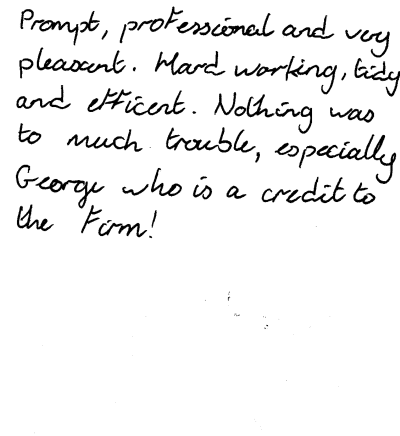 Prompt, professional and very
pleasant. Hard working, tidy
and efficent. Nothing was
to much trouble, especially
George who is a credit to
the Firm!